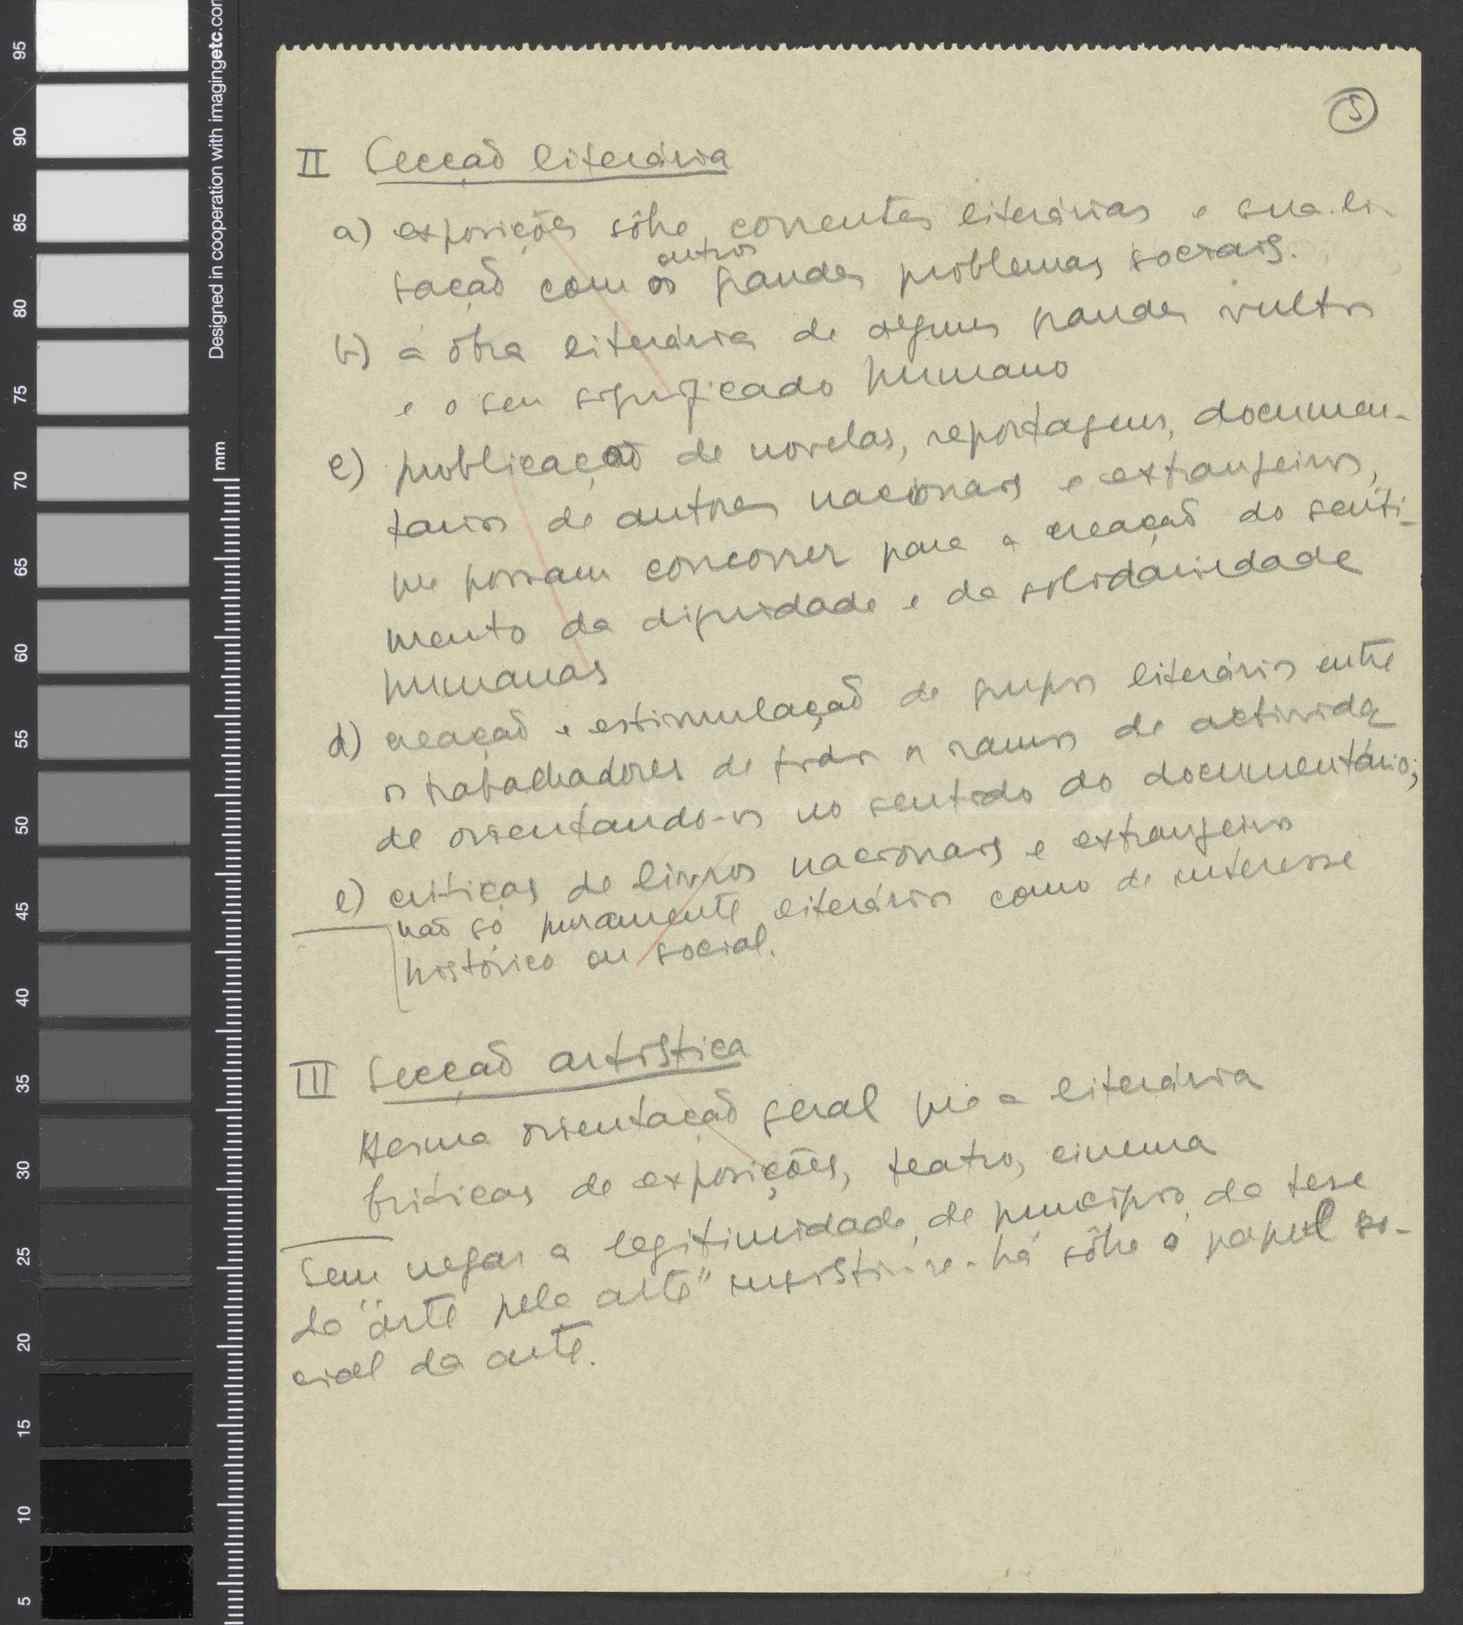 5
II Secção literária
a) exposições sôbre correntes literárias e sua li-
outros
gação com os grandes problemas sociais.
b) a obra literária de alguns grandes vultos
e o seu significado humano
c) publicação de novelas, reportagens, documen-
tarios de autores nacionais e extrangeiros,
que possam concorrer para a creação do senti-
mento da dignidade e da solidariedade
humanas
d) creação e estimulação de grupos literários entre
os trabalhadores de todos os ramos de activida
de orientando-os no sentido do documentário;
e) criticas de livros nacionais e extrangeiros
não só puramente literários como de interesse
histórico ou social.
III Secção artistica
Mesma orientação geral que a literária
Criticas de exposições, teatro, cinema
Sem negar a legitimidade, de principio, da tese
da "arte pela arte" insistir-se-há sôbre o papel so-
cial da arte.
95
90
85
80
75
70
65
60
55
50
45
40
35
30
25
20
15
10
5
Designed in cooperation with imagingetc.com
mm